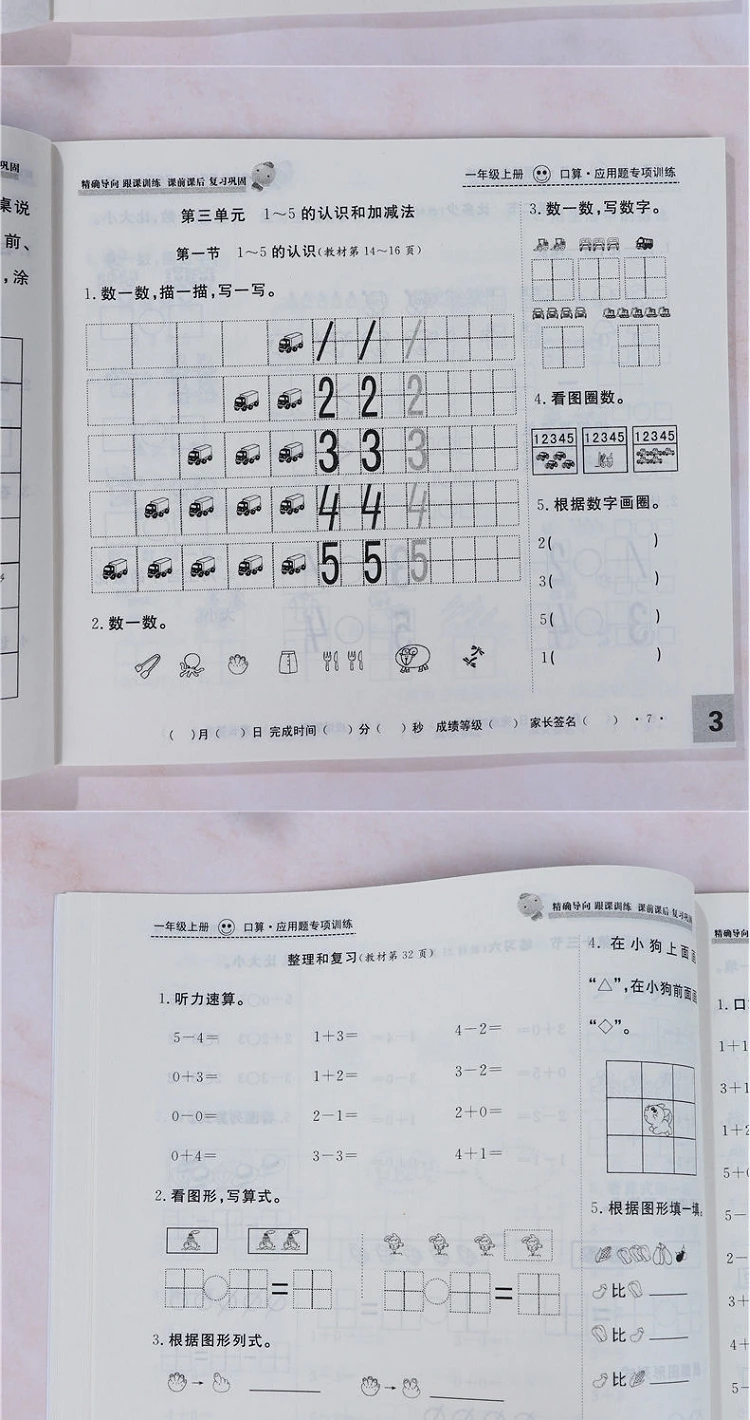 巩固
桌说
前、
，涂
精确导向 跟课训练 课前课后 复习巩固
一年级上册 口算·应用题专项训练
第三单元 1～5的认识和加减法
第一节 1～5的认识(教材第14～16页)
1.数一数,描一描,写一写。
1 1 1
2 2 2
3 3 3
4 4 4
5 5 5
2.数一数。
3.数一数,写数字。
4.看图圈数。
12345 12345 12345
5.根据数字画圈。
2( )
3( )
5( )
1( )
( )月( )日 完成时间( )分( )秒 成绩等级( ) 家长签名( ) ·7·
3
一年级上册 口算·应用题专项训练
整理和复习(教材第32页)
1.听力速算。
5-4= 1+3= 4-2=
0+3= 1+2= 3-2=
0-0= 2-1= 2+0=
0+4= 3-3= 4+1=
2.看图形,写算式。
= =
3.根据图形列式。
→ →
精确导向 跟课训练 课前课后 复习巩
4.在小狗上面画
“△”,在小狗前面画
“◇”。
5.根据图形填一填
比
比
比
精确导向
1.口
1+1
3+1
1+2
5+0
5-
2-
3+
4+
5-